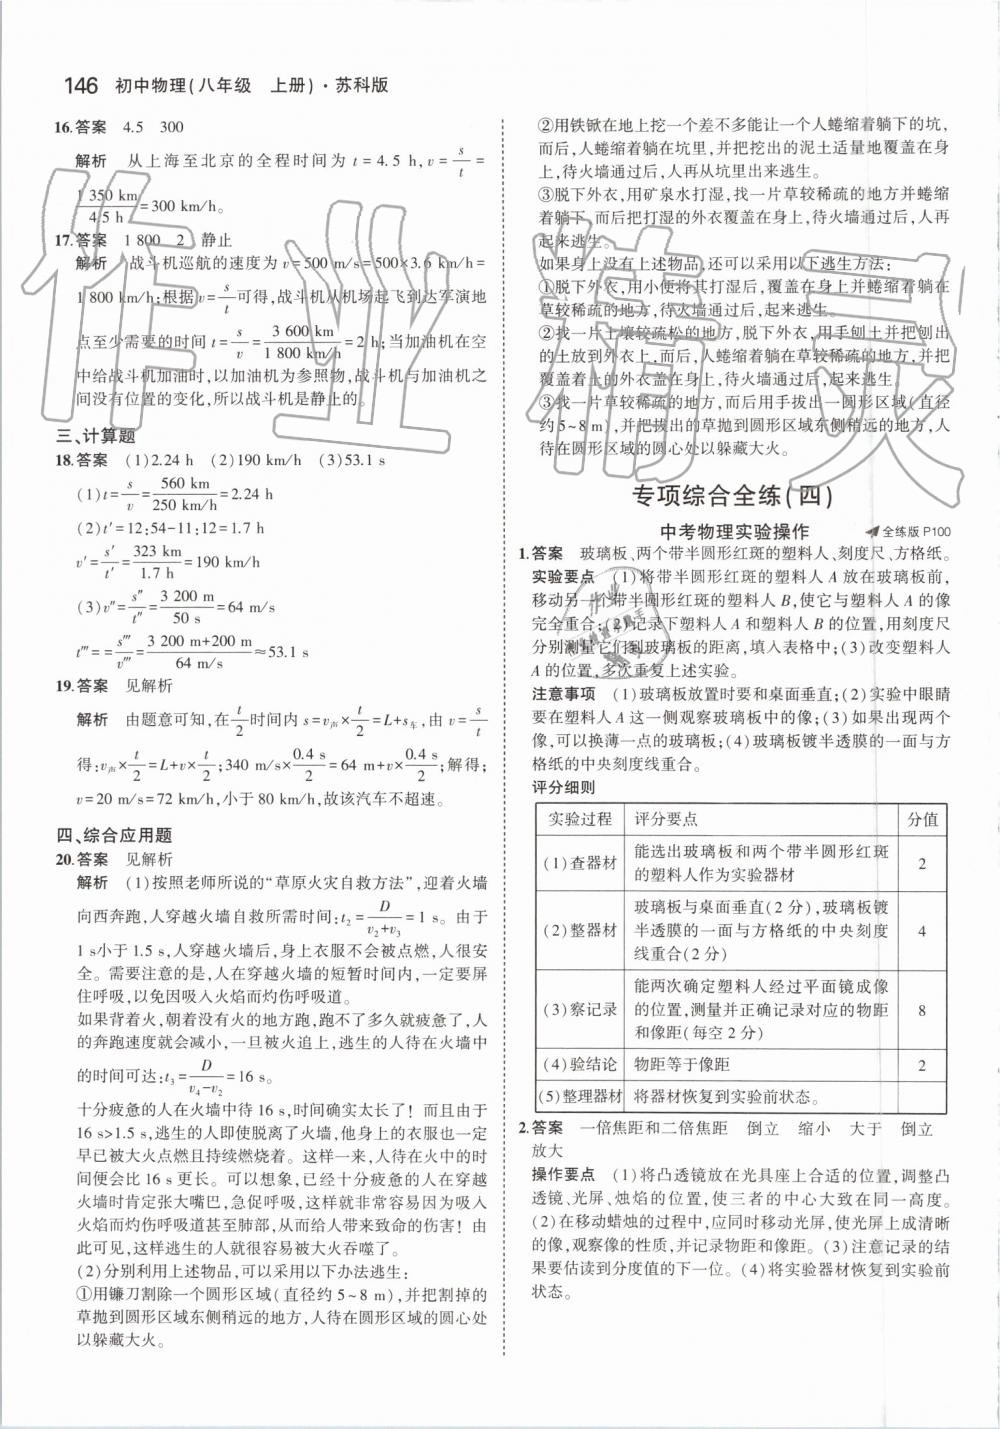 146 初中物理(八年级 上册)·苏科版
16.答案 4.5 300
解析 从上海至北京的全程时间为 t = 4.5 h,v = s/t =
1 350 km/4.5 h = 300 km/h。
17.答案 1 800 2 静止
解析 战斗机巡航的速度为 v = 500 m/s = 500×3.6 km/h =
1 800 km/h;根据 v = s/t 可得,战斗机从机场起飞到达军演地
点至少需要的时间 t = s/v = 3 600 km/1 800 km/h = 2 h;当加油机在空
中给战斗机加油时,以加油机为参照物,战斗机与加油机之
间没有位置的变化,所以战斗机是静止的。
三、计算题
18.答案 (1)2.24 h (2)190 km/h (3)53.1 s
(1)t = s/v = 560 km/250 km/h = 2.24 h
(2)t′ = 12:54-11:12 = 1.7 h
v′ = s′/t′ = 323 km/1.7 h = 190 km/h
(3)v″ = s″/t″ = 3 200 m/50 s = 64 m/s
t‴ = = s‴/v‴ = 3 200 m+200 m/64 m/s ≈ 53.1 s
19.答案 见解析
解析 由题意可知,在 t/2 时间内 s = v声 × t/2 = L+s车,由 v = s/t
得:v声 × t/2 = L+v× t/2;340 m/s× 0.4 s/2 = 64 m+v× 0.4 s/2;解得;
v = 20 m/s = 72 km/h,小于 80 km/h,故该汽车不超速。
四、综合应用题
20.答案 见解析
解析 (1)按照老师所说的“草原火灾自救方法”,迎着火墙
向西奔跑,人穿越火墙自救所需时间:t2 = D/v2+v3 = 1 s。由于
1 s小于 1.5 s,人穿越火墙后,身上衣服不会被点燃,人很安
全。需要注意的是,人在穿越火墙的短暂时间内,一定要屏
住呼吸,以免因吸入火焰而灼伤呼吸道。
如果背着火,朝着没有火的地方跑,跑不了多久就疲惫了,人
的奔跑速度就会减小,一旦被火追上,逃生的人待在火墙中
的时间可达:t3 = D/v4-v2 = 16 s。
十分疲惫的人在火墙中待 16 s,时间确实太长了! 而且由于
16 s>1.5 s,逃生的人即使脱离了火墙,他身上的衣服也一定
早已被大火点燃且持续燃烧着。这样的人,实际受到火焰炙
烤的时间比 16 s 更长。可以想象,已经十分疲惫的人在穿越
火墙时肯定张大嘴巴,急促呼吸,这样就非常容易因为吸入
火焰而灼伤呼吸道甚至肺部,从而给人带来致命的伤害! 由
此可见,这样逃生的人就很容易被大火吞噬了。
(2)分别利用上述物品,可以采用以下办法逃生:
①用镰刀割除一个圆形区域(直径约 5~8 m),并把割掉的
草抛到圆形区域东侧稍远的地方,人待在圆形区域的圆心处
以躲藏大火。
②用铁锨在地上挖一个差不多能让一个人蜷缩着躺下的坑,
而后,人蜷缩着躺在坑里,并把挖出的泥土适量地覆盖在身
上,待火墙通过后,人再从坑里出来逃生。
③脱下外衣,用矿泉水打湿,找一片草较稀疏的地方并蜷缩
着躺下,而后把打湿的外衣覆盖在身上,待火墙通过后,人再
起来逃生。
如果身上没有上述物品,还可以采用以下逃生方法:
①脱下外衣,用小便将其打湿后,覆盖在身上,并蜷缩着躺在
草较稀疏的地方,待火墙通过后,人再起来逃生。
②找一片土壤较疏松的地方,脱下外衣,用手刨土并把刨出
的土放到外衣上,而后,人蜷缩着躺在草较稀疏的地方,并把
放有土的外衣盖在身上,待火墙通过后,人再起来逃生。
③找一片草较稀疏的地方,尽快拔出一圆形区域(直径
约 5~8 m),并把拔出的草抛到圆形区域东侧稍远的地方,人
待在圆形区域的圆心处以躲藏大火。
专项综合全练(四)
中考物理实验操作 全练版 P100
1.答案 玻璃板、两个带半圆形红斑的塑料人、刻度尺、方格纸。
实验要点 (1)将带半圆形红斑的塑料人 A 放在玻璃板前,
移动另一个带半圆形红斑的塑料人 B,使它与塑料人 A 的像
完全重合;(2)记录下塑料人 A 和塑料人 B 的位置,用刻度尺
分别测量它们到玻璃板的距离,填入表格中;(3)改变塑料人
A 的位置,多次重复上述实验。
注意事项 (1)玻璃板放置时要和桌面垂直;(2)实验中眼睛
要在塑料人 A 这一侧观察玻璃板中的像;(3)如果出现两个
像,可以换薄一点的玻璃板;(4)玻璃板镀半透膜的一面与方
格纸的中央刻度线重合。
评分细则
实验过程 评分要点 分值
(1)查器材 能选出玻璃板和两个带半圆形红斑
的塑料人作为实验器材 2
(2)整器材 玻璃板与桌面垂直(2 分),玻璃板镀
半透膜的一面与方格纸的中央刻度
线重合(2 分) 4
(3)察记录 能两次确定塑料人经过平面镜成像
的位置,测量并正确记录对应的物距
和像距(每空 2 分) 8
(4)验结论 物距等于像距 2
(5)整理器材 将器材恢复到实验前状态。
2.答案 一倍焦距和二倍焦距 倒立 缩小 大于 倒立
放大
操作要点 (1)将凸透镜放在光具座上合适的位置,调整凸
透镜、光屏、烛焰的位置,使三者的中心大致在同一高度。
(2)在移动蜡烛的过程中,应同时移动光屏,使光屏上成清晰
的像,观察像的性质,并记录物距和像距。(3)注意记录的结
果要估读到分度值的下一位。(4)将实验器材恢复到实验前
状态。
作业精灵